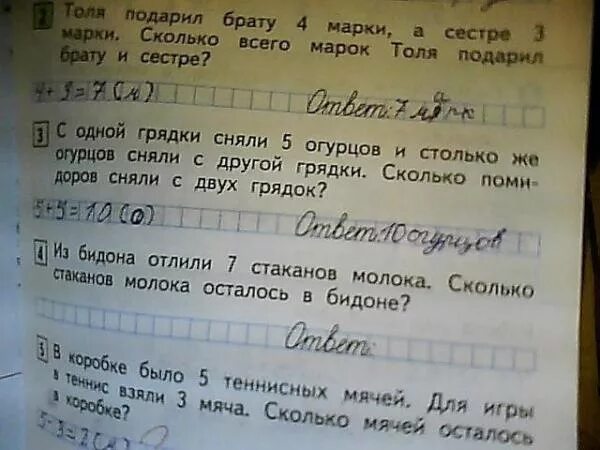 2 Толя подарил брату 4 марки, а сестре 3
марки. Сколько всего марок Толя подарил
брату и сестре?
4+3=7(м) Ответ: 7 марк
3 С одной грядки сняли 5 огурцов и столько же
огурцов сняли с другой грядки. Сколько поми-
доров сняли с двух грядок?
5+5=10(о) Ответ: 10 огурцов
4 Из бидона отлили 7 стаканов молока. Сколько
стаканов молока осталось в бидоне?
Ответ:
5 В коробке было 5 теннисных мячей. Для игры
в теннис взяли 3 мяча. Сколько мячей осталось
в коробке?
5-3=2(м)